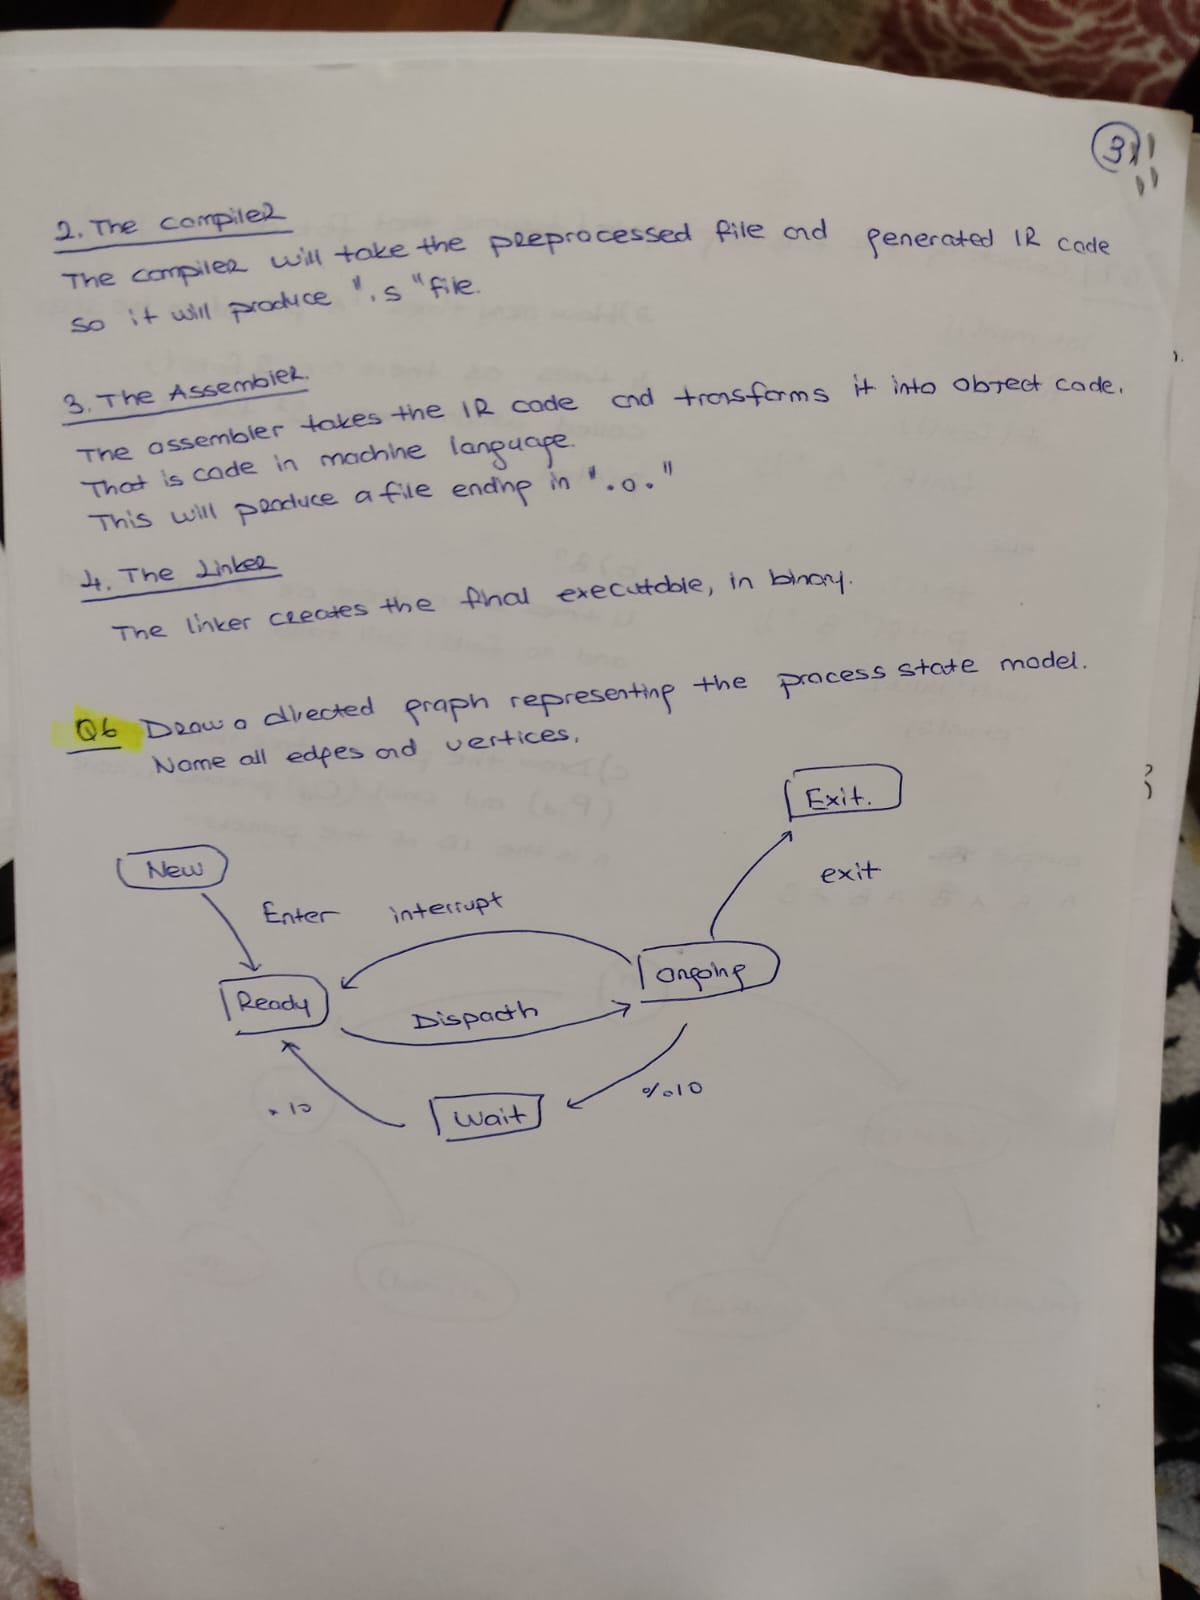 3
2. The compiler
The compiler will take the preprocessed file and generated IR code
so it will produce ".s" file.
3. The Assembler.
The assembler takes the IR code and transforms it into object code.
That is code in machine language.
This will produce a file ending in ".o."
4. The Linker
The linker creates the final executable, in binary.
Q6 Draw a directed graph representing the process state model.
Name all edges and vertices.
Exit.
New
exit
Enter interrupt
Ongoing
Ready
Dispacth
Wait